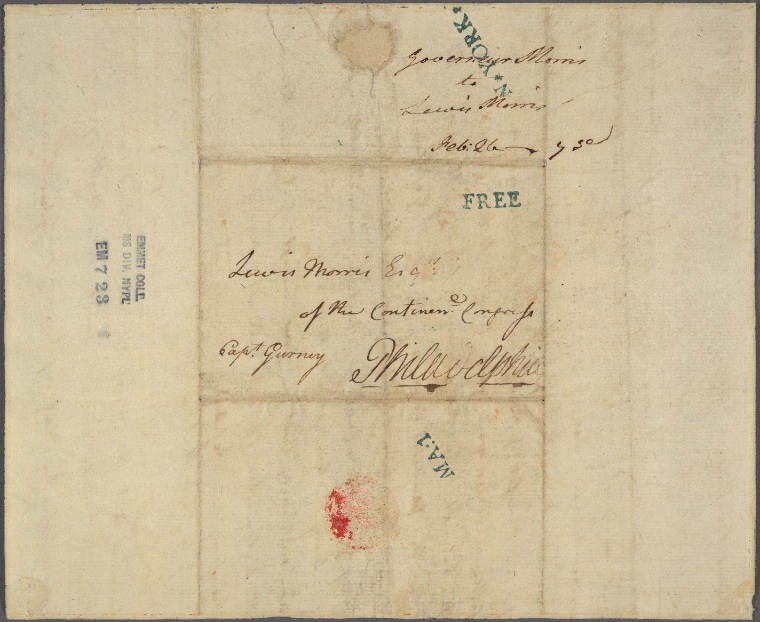 N.YORK.
Governeur Morris
to
Lewis Morris
Feb: 26
FREE
Lewis Morris Esqr.
of the Continene. Congress
Capt. Gurney
Philadelphia
MA:1
EMMET COLL.
MS DIV. NYPL
EM 723